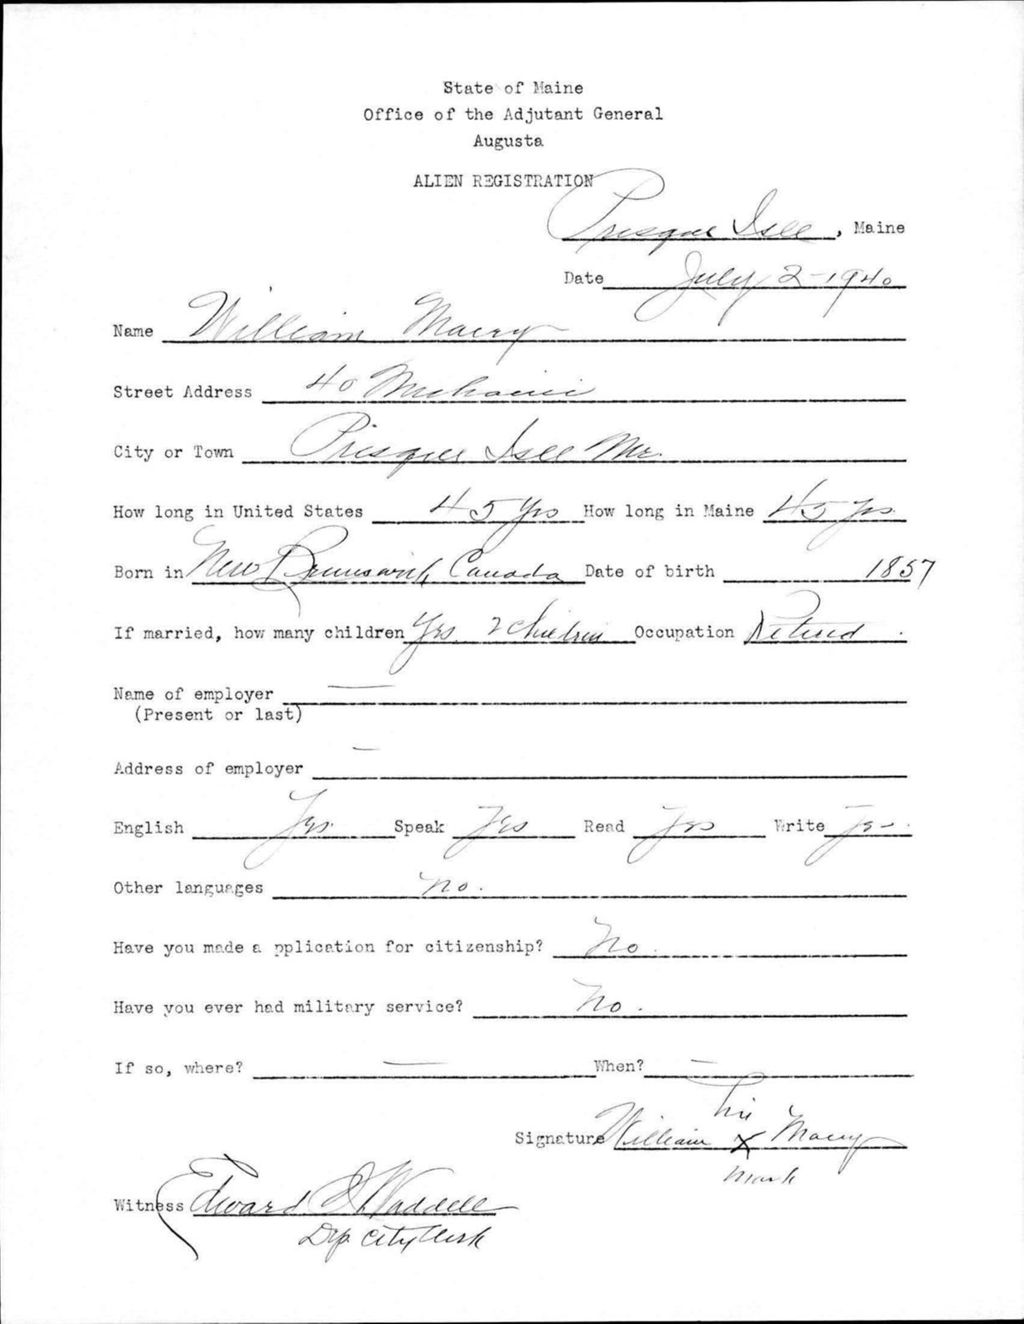 State of Maine
Office of the Adjutant General
Augusta
ALIEN REGISTRATION
Presque Isle, Maine
Date July 2-1940
Name William
Street Address 40 Mechanic
City or Town Presque Isle Me.
How long in United States 45 Yrs How long in Maine 45 Yrs
Born in New Brunswick Canada Date of birth 1857
If married, how many children Yes 2 children Occupation Retired.
Name of employer —
(Present or last)
Address of employer —
English Yes. Speak Yes Read Yes Write Yes.
Other languages no.
Have you made a pplication for citizenship? No.
Have you ever had military service? No.
If so, where? — When? —
his
Signature William X
mark
Witness Edward Waddell
Dep. City Clerk